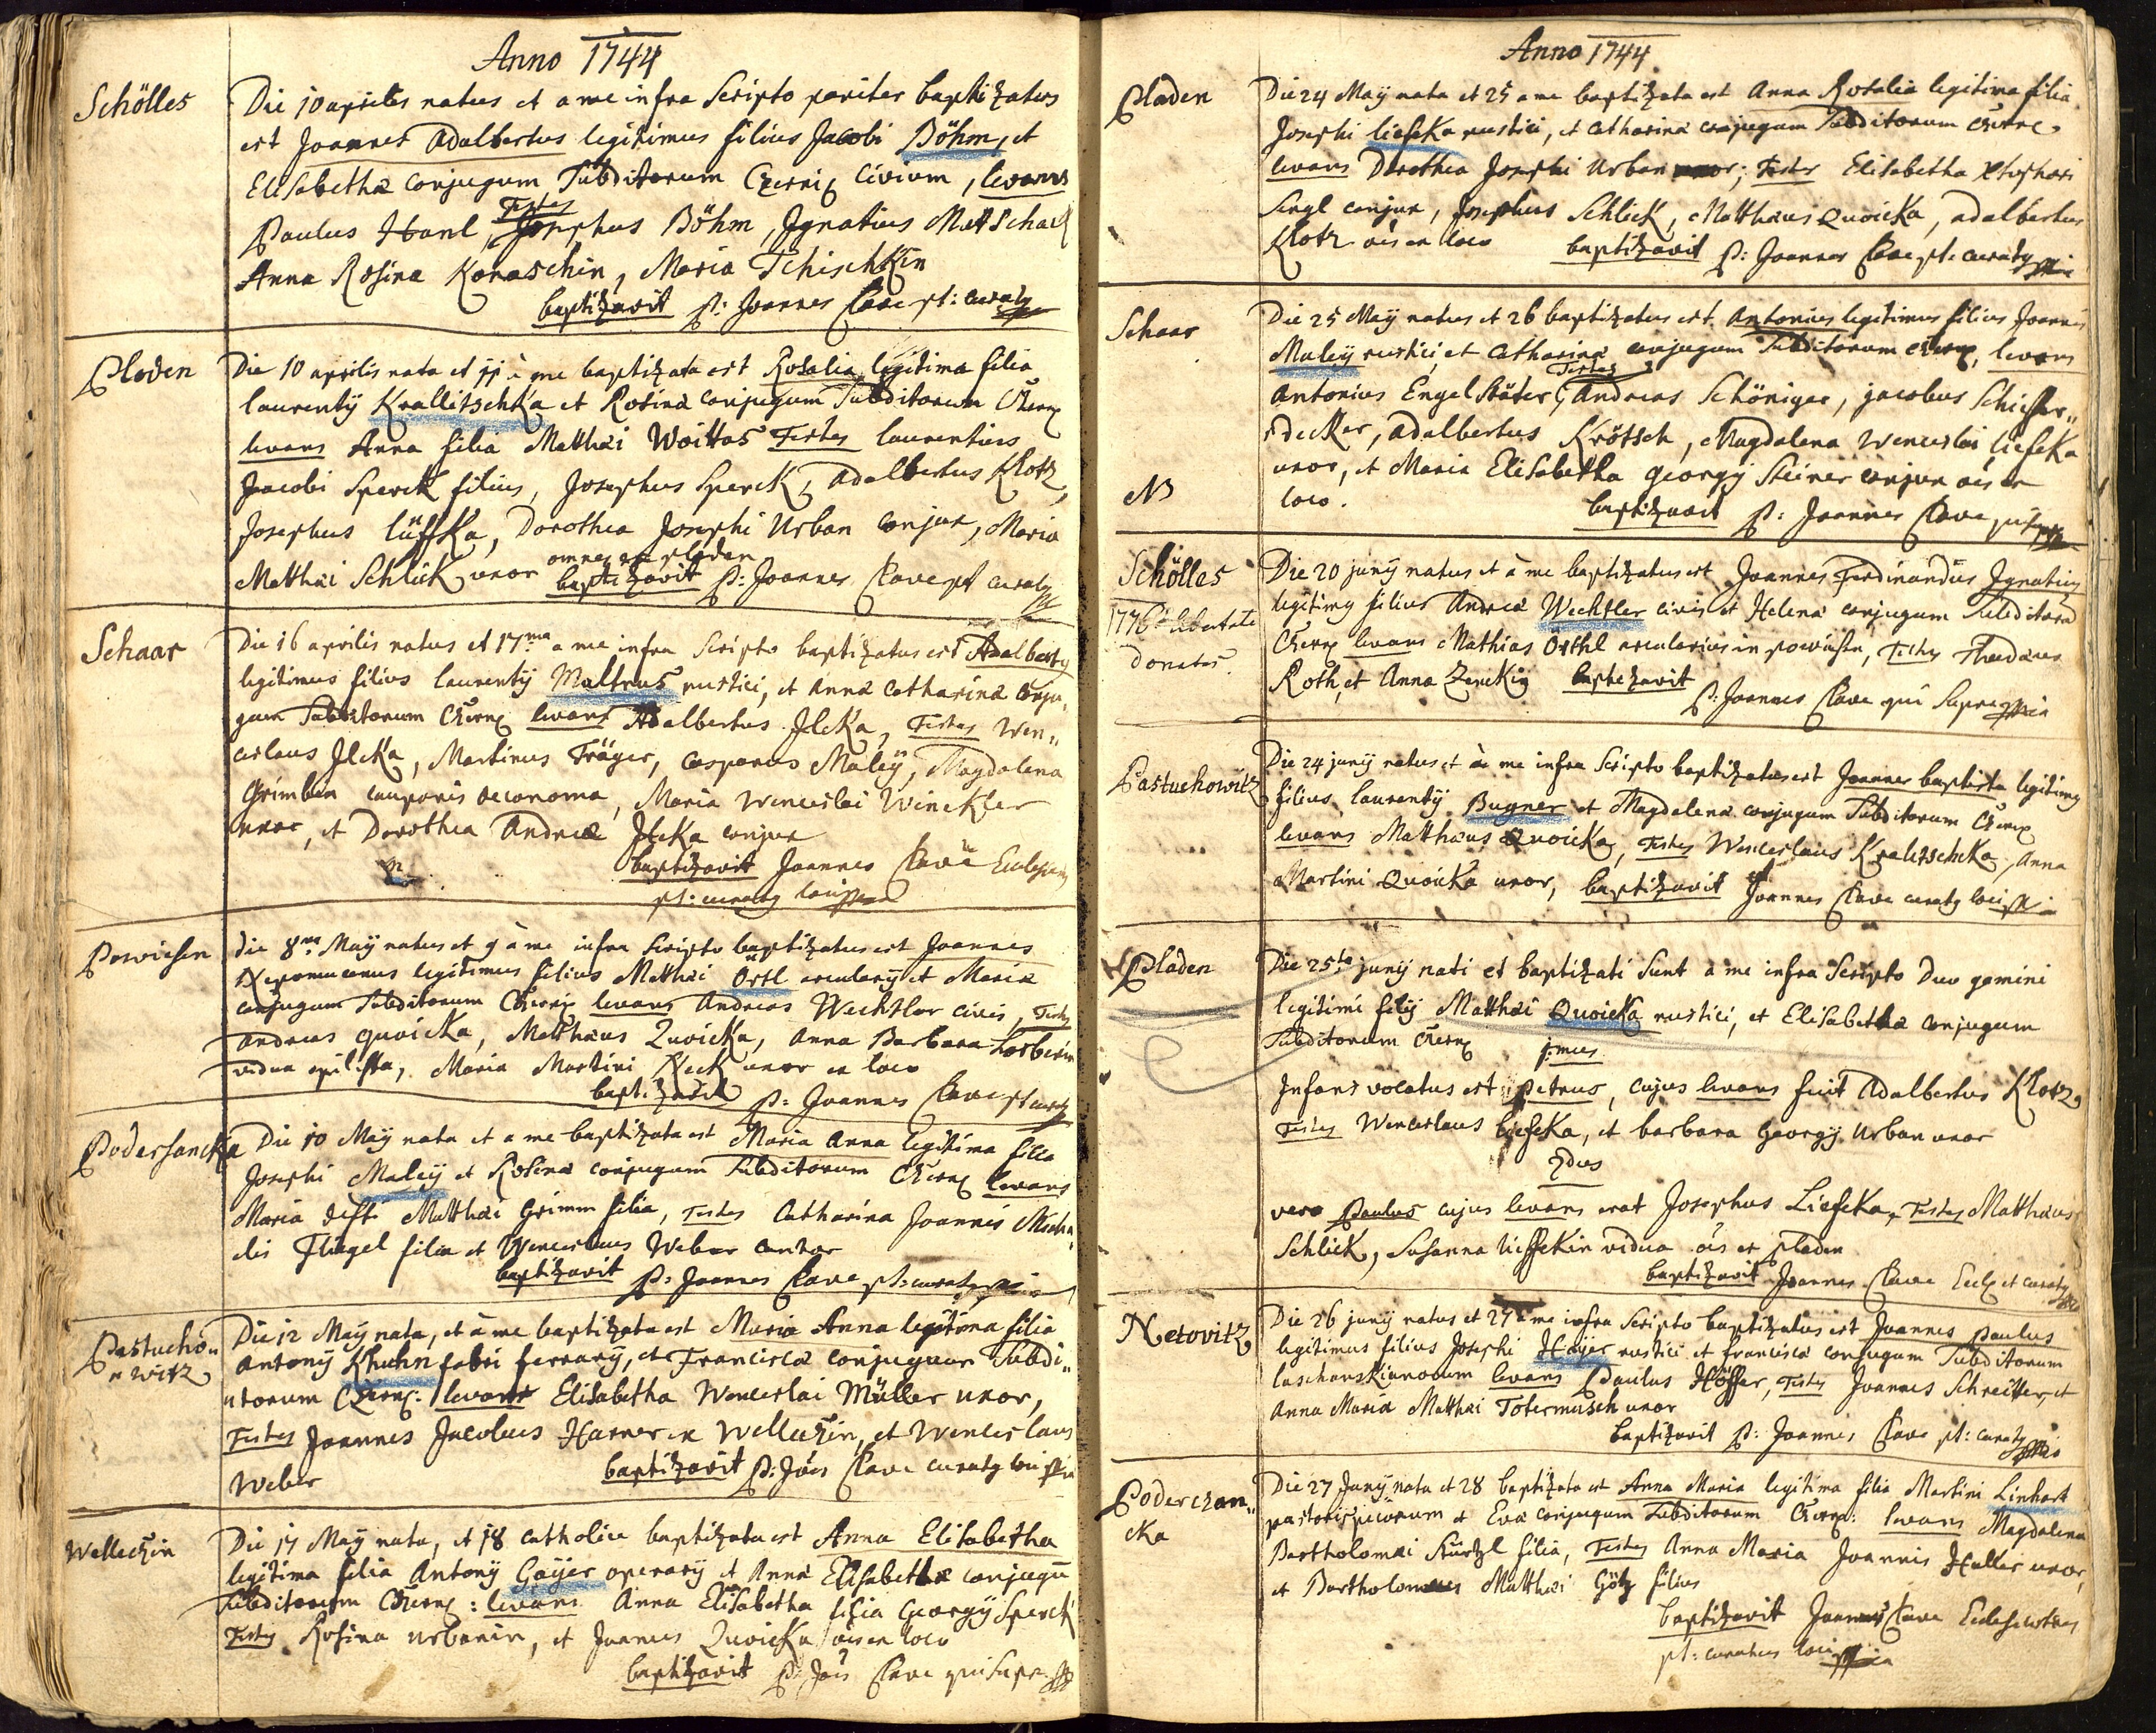 Anno 1744
Schölles
Die 10 aprilis natus et a me infra Scripto pariter baptizatus
est Joannes Adalbertus legitimus filius Jacobi Böhm, et
Elisabetha conjugum Subditorum Czernix Civium, levans
Testes
Paulus Hanl, Josephus Böhm, Jgnatius Mattschack
Anna Rosina Konaschin, Maria Tschischkin
baptizavit P: Joannes Clave pt: curatq
Pladen
Die 10 aprilis nata et 11 à me baptizata est Rosalia legitima filia
laurentÿ Krallitschka et Rosina conjugum Subditorum Czerng
levans Anna filia Matthæi Woittas Testes laurentius
Jacobi Sperck filius, Josephus Sperck, Adalbertus Klotz,
Josephus lüffka, Dorothea Josephi Urban conjux, Maria
Matthæi Schlick uxor omnes ex pladen
baptizavit P: Joannes Clave pt curatq
Schaar
Die 16 aprilis natus et 17ma a me infra Scripto baptizatus est Adalbertq
legitimus filius laurentÿ Maltrus rustici, et Anna Catharina Conju,
gum Subditorum Czerng levans Adalbertus Jlcka, Testes Wen„
ceslaus Jlcka, Martinus Träger, Casparus Maleÿ, Magdalena
Grimbin cauponis oeconoma, Maria Wenceslai Winckler
uxor, et Dorothea Andreæ Jlcka conjux
baptizavit Joannes Clave
pt: curatq loci
Powiesen
die 8va Maÿ natus et 9 à me infra Scripto baptizatus est Joannes
Nepomucenus legitimus filius Matthæi Örtl arcularÿ et Maria
conjugum Subditorum Czernix levans Andreas Wechtler civis, Testes
Andreas quoicka, Matthæus Quoicka, Anna Barbara
vidua, Maria Martini Keck uxor ex loco
baptizavit P: Joannes Clave pt curatq
Podersancka
Die 10 Maÿ nata et a me baptizata est Maria Anna legitima filia
Josephi Maleÿ et Rosina conjugum Subditorum Czerng levans
Maria defti Matthæi Grimm filia, Testes Catharina Joannis Micha„
elis Fliegel filia et Wenceslaus Weber cantor
baptizavit P: Joannes Clave pt: curatq
Pastucho„
„witz
Die 12 Maÿ nata, et à me baptizata est Maria Anna legitima filia
Antonÿ Khuhn fabri ferrarÿ, et Francisca conjugum Subdi„
„torum Czerng: levans Elisabetha Wenceslai Müller uxor,
Testes Joannes Jacobus Harner ex Welleczin, et Wenceslaus
Weber
baptizavit P: Jões Clave curatq loci
Welleczin
Die 17 Maÿ nata, et 18 catholice baptizata est Anna Elisabetha
legitima filia Antonÿ Gaÿer operarÿ et Anna Elisabetha conjugū
Subditorum Czerng: levans Anna Elisabetha filia Georgÿ Sperck
Testes Rosina Urbanin, et Joannes Quoicka oes ex loco
baptizavit P: Jões Clave qui Supr.
Anno 1744
Pladen
Die 24 Maÿ nata et 25 a me baptizata est Anna Rosalia legitima filia
Josephi liefcka rustici, et Catharina conjugum Subditorum Czerne.
levans Dorothea Josephi Urban uxor; Testes Elisabetha Xtophori
Sirgl conjux, Josephus Schlick, Matthæus Quoicka, Adalbertus
Klotz oës ex loco baptizavit P: Joannes Clave pt: curatq
Schaar
Die 25 Maÿ natus et 26 baptizatus est Antonius legitimus filius Joannis
Maleÿ rustici, et Catharina conjugum Subditorum Czerng, levans
Testes
Antonius Engelstäter, Andreas Schöniger, jacobus Schiefer„
„decker, Adalbertus Krötsch, Magdalena Wenceslai liefcka
uxor, et Maria Elisabetha georgÿ Steiner conjux oës ex
NB
loco.
baptizavit P: Joannes Clave
Schölles
1776 libertate
donatus
Die 20 junÿ natus et à me baptizatus est Joannes Ferdinandus Jgnatius
legitimq filius Andreæ Wechtler civis et Helena conjugum Subditorū
Czerng levans Mathias Örthl arcularius in powiesen, Testes Thadæus
Roth, et Anna Zenckin baptizavit
P: Joannes Clave qui Supra
Pastuchowitz
Die 24 junÿ natus et à me infra Scripto baptizatus est Joannes baptista legitimq
filius laurentÿ Bugner et Magdalena conjugum Subditorum Czerng
levans Matthæus Quoicka, Testes Wenceslaus Kralitzschka, Anna
Martini Quoicka uxor, baptizavit Joannes Clave curatq loci
Pladen
Die 25ta junÿ nati et baptizati Sunt a me infra Scripto Duo gemini
legitimi filÿ Matthæi Quoicka rustici, et Elisabetha conjugum
Subditorum Czerng
1mus
Jnfans vocatus est Petrus, cujus levans fuit Adalbertus Klotz,
Testes Wenceslaus liefcka, et barbara Georgÿ Urban uxor
2dus
vero Paulus cujus levans erat Josephus Liefcka, Testes Matthæus
Schlick, Susanna lieffckin vidua oës ex pladen
baptizavit Joannes Clave Eccl et curatq
Netovitz
Die 26 junÿ natus et 27 a me infra Scripto baptizatus est Joannes Paulus
legitimus filius Josephi Haÿer rustici et francisca conjugum Subditorum
laschanskianorum levans Paulus Höffer, Testes Joannes Schreitter, et
Anna Maria Matthæi Totermusch uxor
baptizavit P: Joannes Clave pt: curatq
Poderczan„
cka
Die 27 Junÿ nata et 28 baptizata est Anna Maria legitima filia Martini Linhart
pastoris pecorum et Eva conjugum Subditorum Czerng: levans Magdalena
Bartholomæi Kürtzl filia, Testes Anna Maria Joannis Haller uxor,
et Bartholomæus Matthæi Götz filius
baptizavit Joannes Clave
pt: curatus loci